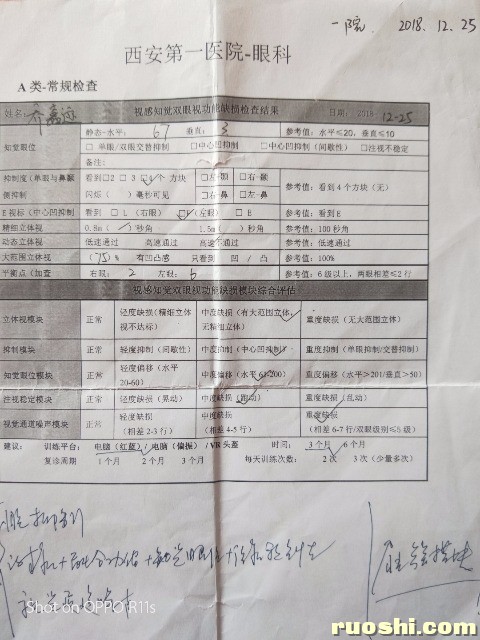 一院 2018.12.25
西安第一医院-眼科
A 类-常规检查
姓名: 视感知觉双眼视功能缺损检查结果 日期: 2018 12-25
知觉眼位 静态-水平: 67 垂直: 3 参考值: 水平≤20, 垂直≤10
□ 单眼/双眼交替抑制 □中心凹抑制 □中心凹抑制（间歇性） □注视不稳定
备注:
抑制度（单眼与鼻颞侧抑制 看到□2 □3 □4个 方块 □左-颞 □右-颞 参考值: 看到4个方块（无）
闪烁（ ）毫秒可见 □右-鼻 □左-鼻
E视标（中心凹抑制 看到 □ L（右眼） □（左眼） □ E 参考值: 看到E
精细立体视 0.8m（ ）秒角 1.5m（ ）秒角 参考值: 100秒角
动态立体视 低速通过 高速通过 高速不通过 参考值: 低速通过
大范围立体视 （75）% 有凹凸感 只看到 凹 / 凸 参考值: 100%
平衡点（加查 右眼: 2 左眼: 6 参考值: 6级以上, 两眼相差≤2行
视感知觉双眼视功能缺损模块综合评估
立体视模块 正常 轻度缺损（精细立体视不达标） 中度缺损（有大范围立体，无精细立体） 重度缺损（无大范围立体）
抑制模块 正常 轻度抑制（间歇性） 中度抑制（中心凹抑制） 重度抑制（单眼抑制/交替抑制）
知觉眼位模块 正常 轻度偏移（水平20-60） 中度偏移（水平 61-200） 重度偏移（水平>201/垂直>50）
注视稳定模块 正常 轻度缺损（晃动） 中度缺损（跑动） 重度缺损（乱动）
视觉通道噪声模块 正常 轻度缺损（相差2-3行） 中度缺损（相差4-5行） 重度缺损（相差6-7行/双眼级别≤5级）
建议: 训练平台: 电脑（红蓝）/ 电脑（偏振）/ VR头盔 时间: 3个月 6个月
复诊周期 1个月 2个月 3个月 每天训练次数: 2次 3次（少量多次）
Shot on OPPO R11s
ruoshi.com